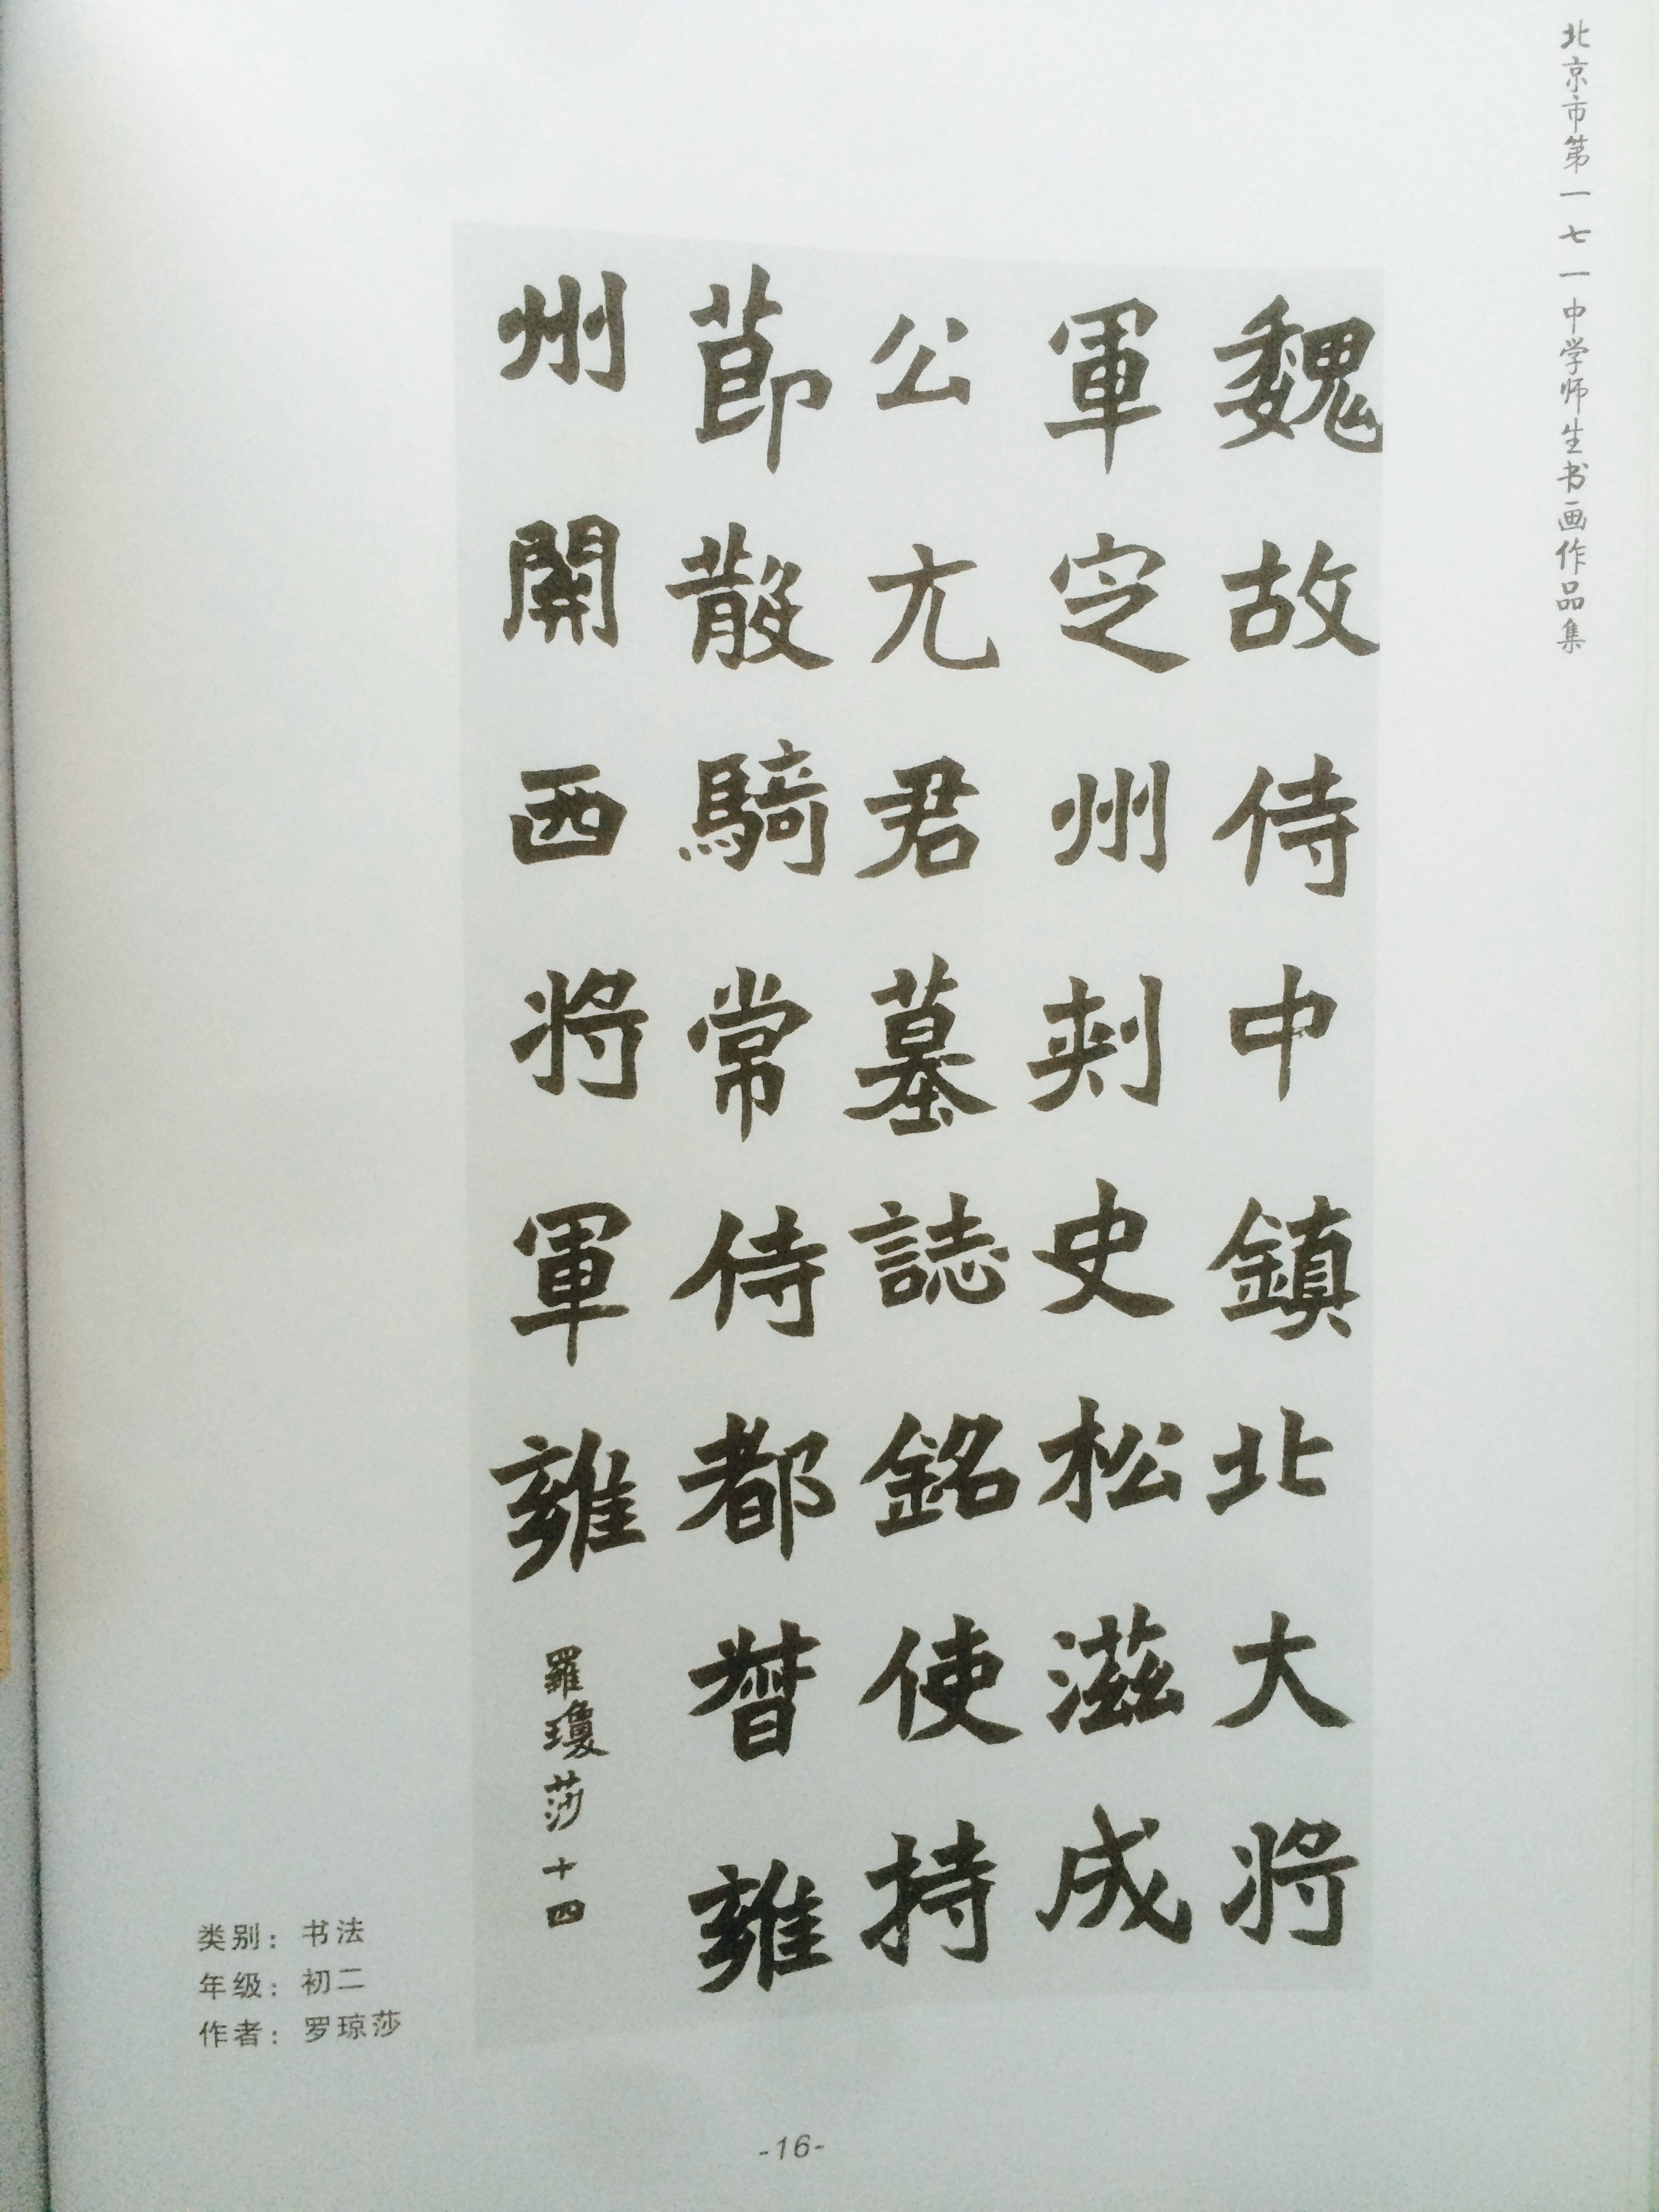 北京市第一七一中学师生书画作品集
魏故侍中鎮北大将
軍定州刺史松滋成
公元君墓誌銘使持
節散騎常侍都督雍
州開西将軍雍
羅瓊莎十四
类别：书法
年级：初二
作者：罗琼莎
-16-